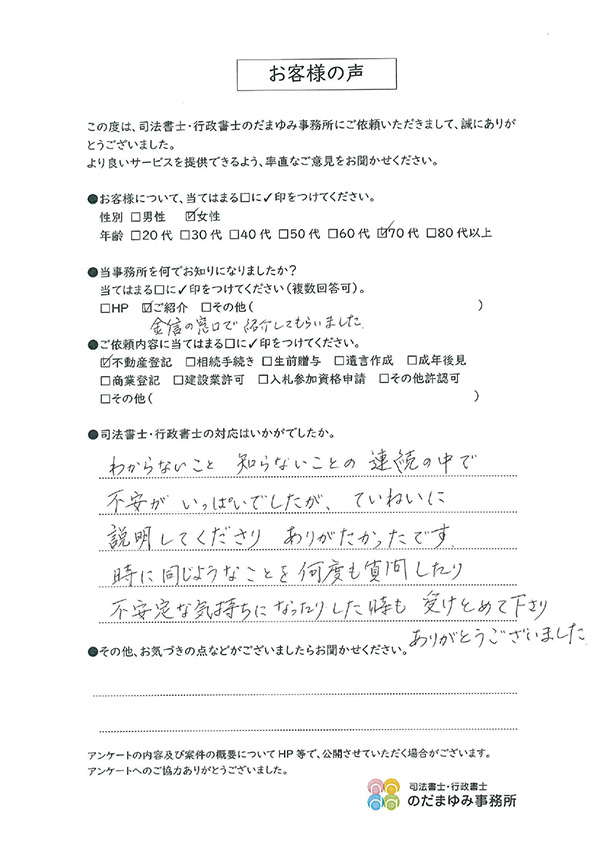 お客様の声
この度は、司法書士・行政書士のだまゆみ事務所にご依頼いただきまして、誠にありが
とうございました。
より良いサービスを提供できるよう、率直なご意見をお聞かせください。
●お客様について、当てはまる□に✓印をつけてください。
性別 □男性 ☑女性
年齢 □20代 □30代 □40代 □50代 □60代 ☑70代 □80代以上
●当事務所を何でお知りになりましたか?
当てはまる□に✓印をつけてください(複数回答可)。
□HP ☑ご紹介 □その他( )
金信の窓口で紹介してもらいました。
●ご依頼内容に当てはまる□に✓印をつけてください。
☑不動産登記 □相続手続き □生前贈与 □遺言作成 □成年後見
□商業登記 □建設業許可 □入札参加資格申請 □その他許認可
□その他( )
●司法書士・行政書士の対応はいかがでしたか。
わからないこと 知らないことの 連続の中で
不安が いっぱいでしたが、ていねいに
説明してくださり ありがたかったです。
時に同じようなことを何度も質問したり
不安定な気持ちになったりした時も 受けとめて下さり
ありがとうございました。
●その他、お気づきの点などがございましたらお聞かせください。
アンケートの内容及び案件の概要についてHP等で、公開させていただく場合がございます。
アンケートへのご協力ありがとうございました。
司法書士・行政書士
のだまゆみ事務所